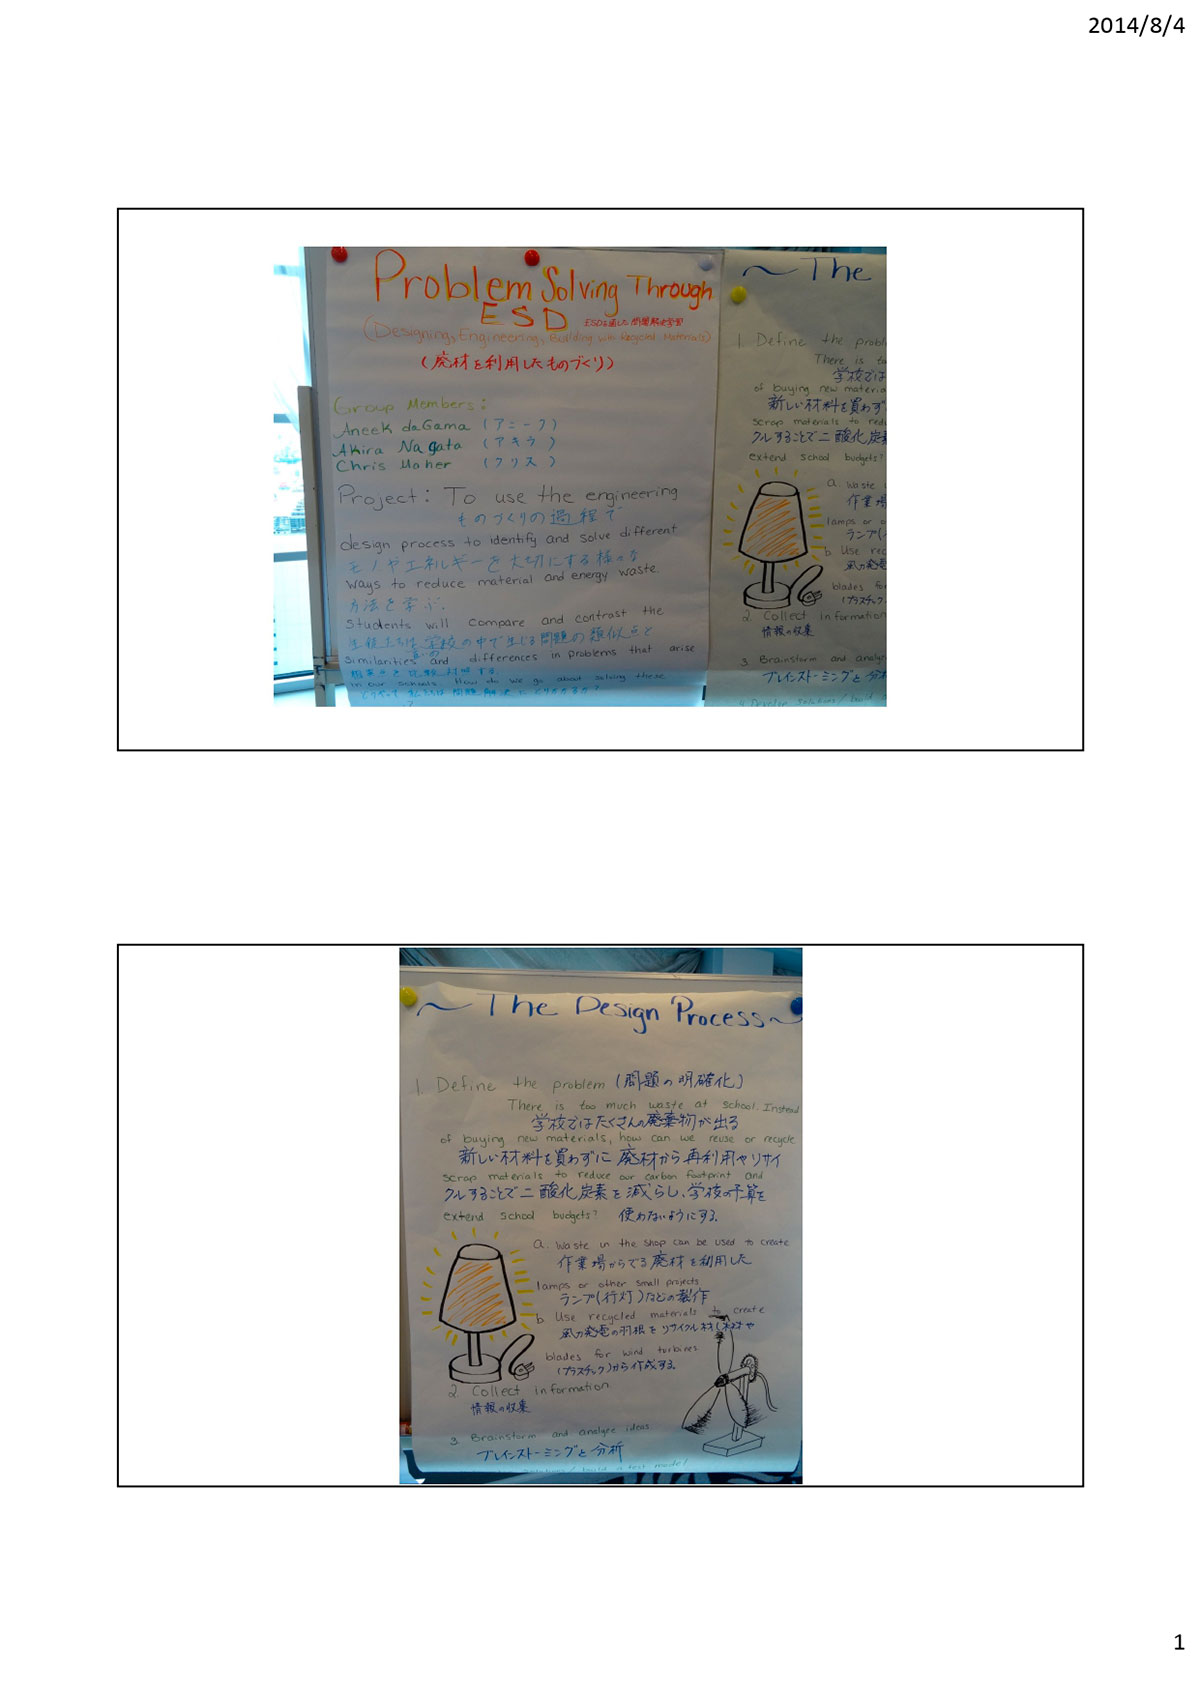 2014/8/4
Problem Solving Through
ESD ESDを通した問題解決学習
(Designing, Engineering, Building with Recycled Materials)
(廃材を利用したものづくり)
Group Members:
Aneek daGama (アニーク)
Akira Nagata (アキラ)
Chris Maher (クリス)
Project: To use the engineering
ものづくりの過程で
design process to identify and solve different
モノやエネルギーを大切にする様々な
ways to reduce material and energy waste.
方法を学ぶ.
Students will compare and contrast the
生徒たちは学校の中で生じる問題の類似点と
similarities and differences in problems that arise
相違点を比較対照する.
in our schools. How do we go about solving these
どうやって私たちは問題解決に
?
~ The
1. Define the probl
There is to
学校では
of buying new materia
新しい材料を買わず
scrap materials to redu
クルすることで二酸化炭素
extend school budgets?
a. Waste
作業場
lamps or o
ランプ(
b. Use rec
風力発電
blades fo
(プラスチック
2. Collect information
情報の収集
3. Brainstorm and analyze
ブレインストーミングと分析
~ The Design Process ~
1. Define the problem (問題の明確化)
There is too much waste at school. Instead
学校ではたくさんの廃棄物が出る
of buying new materials, how can we reuse or recycle
新しい材料を買わずに廃材から再利用やリサイ
scrap materials to reduce our carbon footprint and
クルすることで二酸化炭素を減らし、学校の予算を
extend school budgets? 使わないようにする.
a. Waste in the shop can be used to create
作業場からでる廃材を利用した
lamps or other small projects
ランプ(行灯)などの製作
b. Use recycled materials to create
風力発電の羽根をリサイクル材(木材や
blades for wind turbines
(プラスチック)から作成する.
2. Collect information.
情報の収集
3. Brainstorm and analyze ideas
ブレインストーミングと分析
build a test model
1